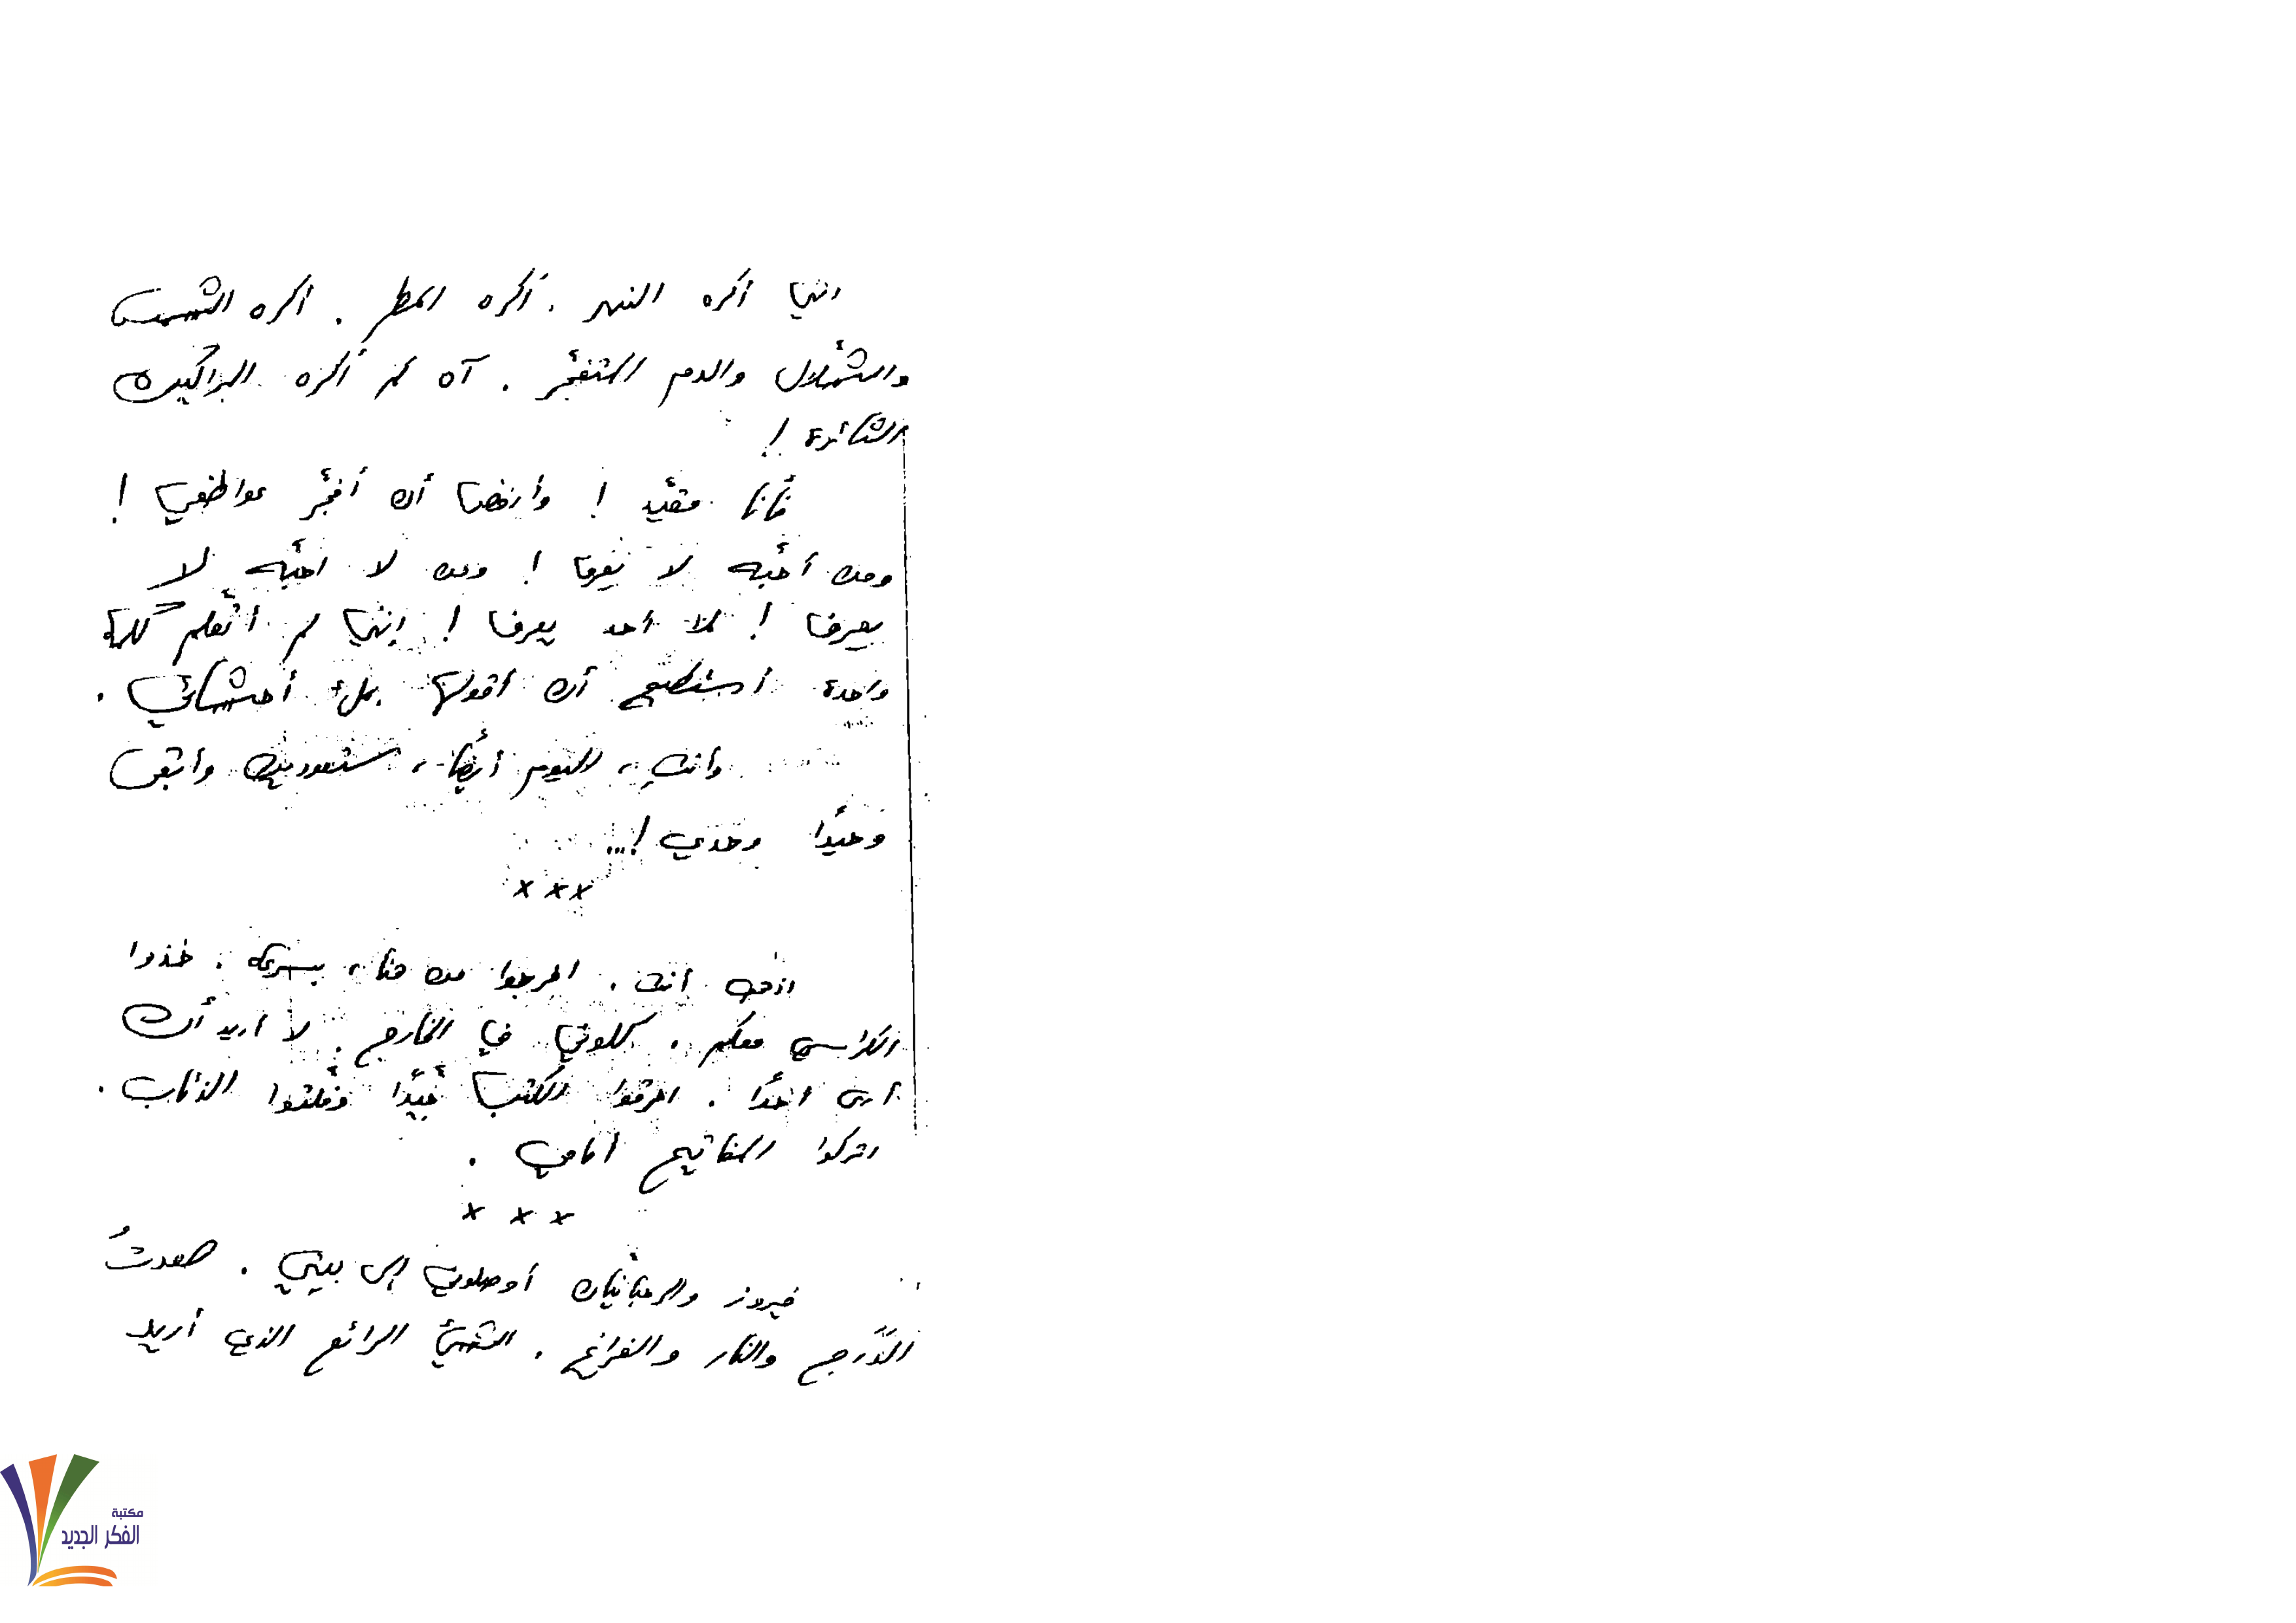 انني أكره النهر . أكره المطر . أكره الشمس
والشلّال والدم المتفجّر . آه كم أكره البراكين
الثائرة !
فأنا مقيّد ! وأرفض أن أفجّر عواطفي !
ومن أحبّه لا يعرف ! ومن لا احبّه لا
يعرف ! لا أحد يعرف ! إنني لم اتعلم كلمة
واحدة أستطيع أن أقولها بملء أحشائي .
وأنتِ ، اليوم أيضًا ، ستعودين وأبقى
وحيدًا وحدي !...
×××
اذهب أنت . اخرجوا من هنا ، بسرعة . خذوا
الكراسي معكم . كلوني في الخارج . لا اريد أن
أرى احدًا . احرقوا الكتب جيّدًا الذئاب .
اتركوا المفاتيح أمامي .
× × ×
فيروز والرحبانيان أوصلوني إلى بيتي . صعدتُ
الدّرج والنار والفراغ . الشيء الرائع الذي أريد
مكتبة
الفكر الجديد